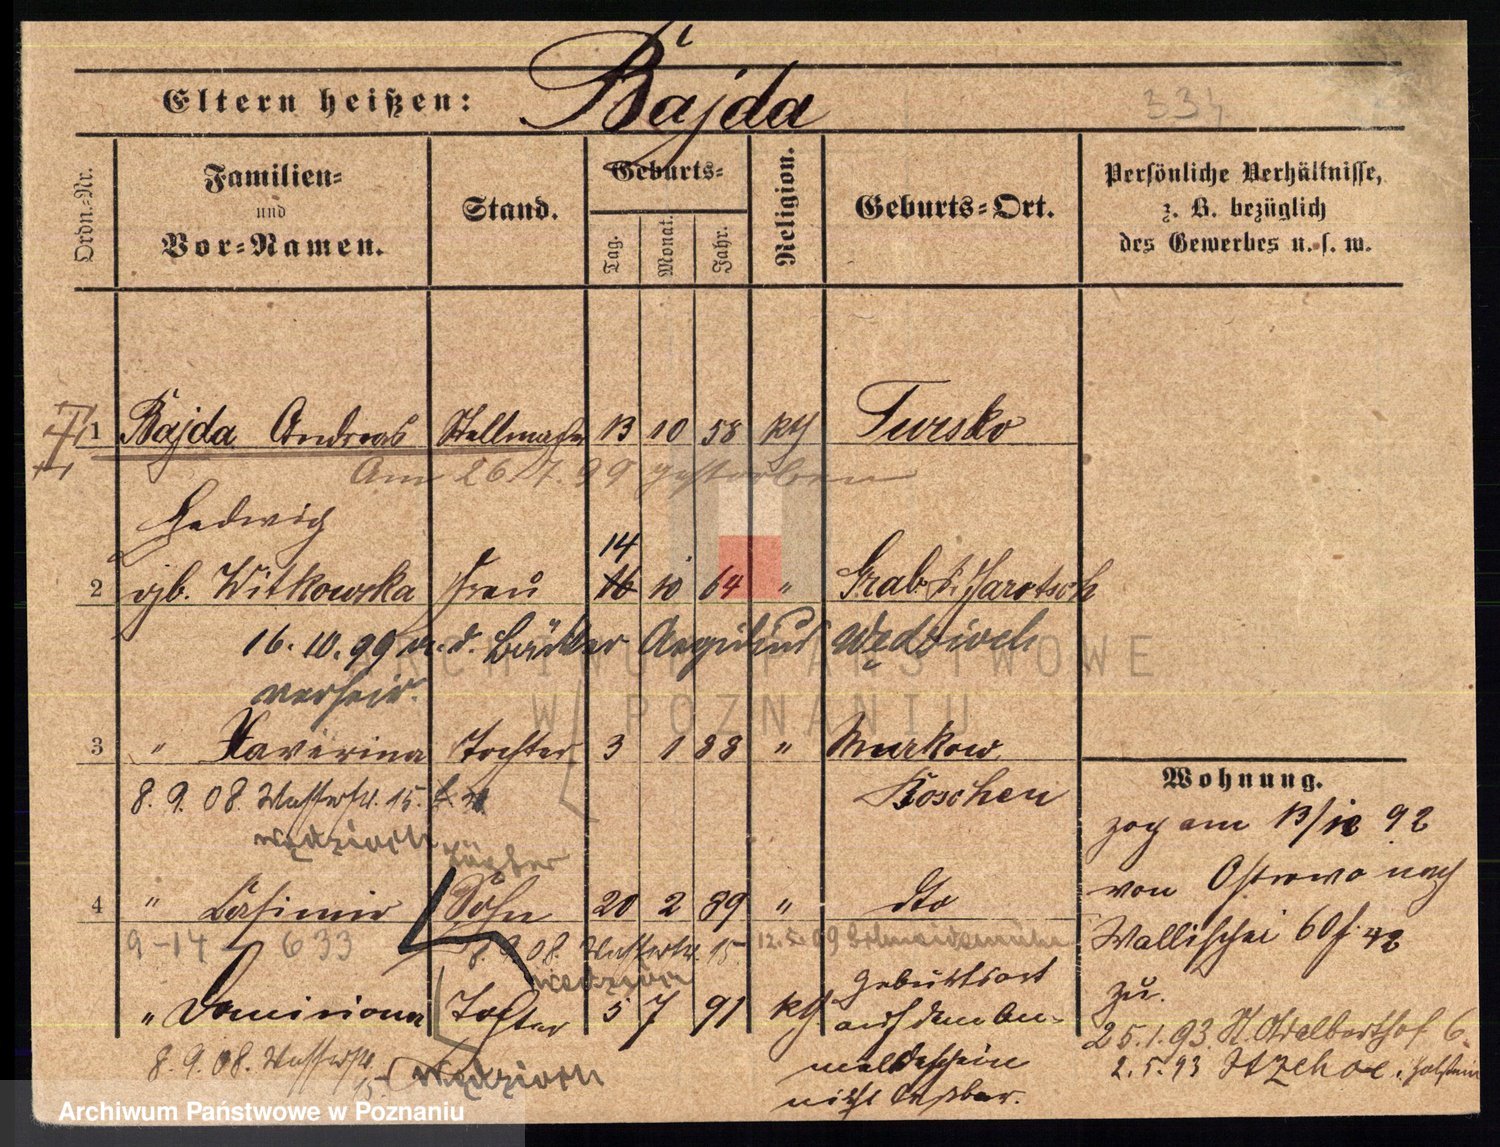 Eltern heißen: Bajda
334
Ordn.-Nr.
Familien-
und
Vor-Namen.
Stand.
Geburts-
Tag.
Monat.
Jahr.
Religion.
Geburts-Ort.
Persönliche Verhältnisse,
z. B. bezüglich
des Gewerbes u. s. w.
1 Bajda Andreas Stellmacher 13 10 58 kth Tursko
Am 26.7.99 gestorben
Hedwig
14
2 gb. Witkowska Frau 16 10 64 " Grab Jarotsch
16.10.99 m. d. Bäcker Aegidius Wędzioch
verheir.
3 " Xaverina Tochter 3 1 88 " Murkow
8.9.08. Wasserstr. 15. Koschen
Wędzioch
4 " Casimir Sohn 20 2 89 " dto
9-14 633 8.9.08. Wasserstr. 15 12.5.09 Schneidemühl
Wędzioch
" Tochter 5 7 91 kth Geburtsort
auf dem An-
meldeschein
nicht lesbar.
8.9.08. Wasserstr.
15 Wędzioch
Wohnung.
zog am 13/10 92
von Ostrowo nach
Wallischei 60 f. 42
zu.
25.1.93. St. Adalberthof 6.
2.5.93 Itzehoe i. Holstein
ARCHIWUM PAŃSTWOWE
W POZNANIU
Archiwum Państwowe w Poznaniu